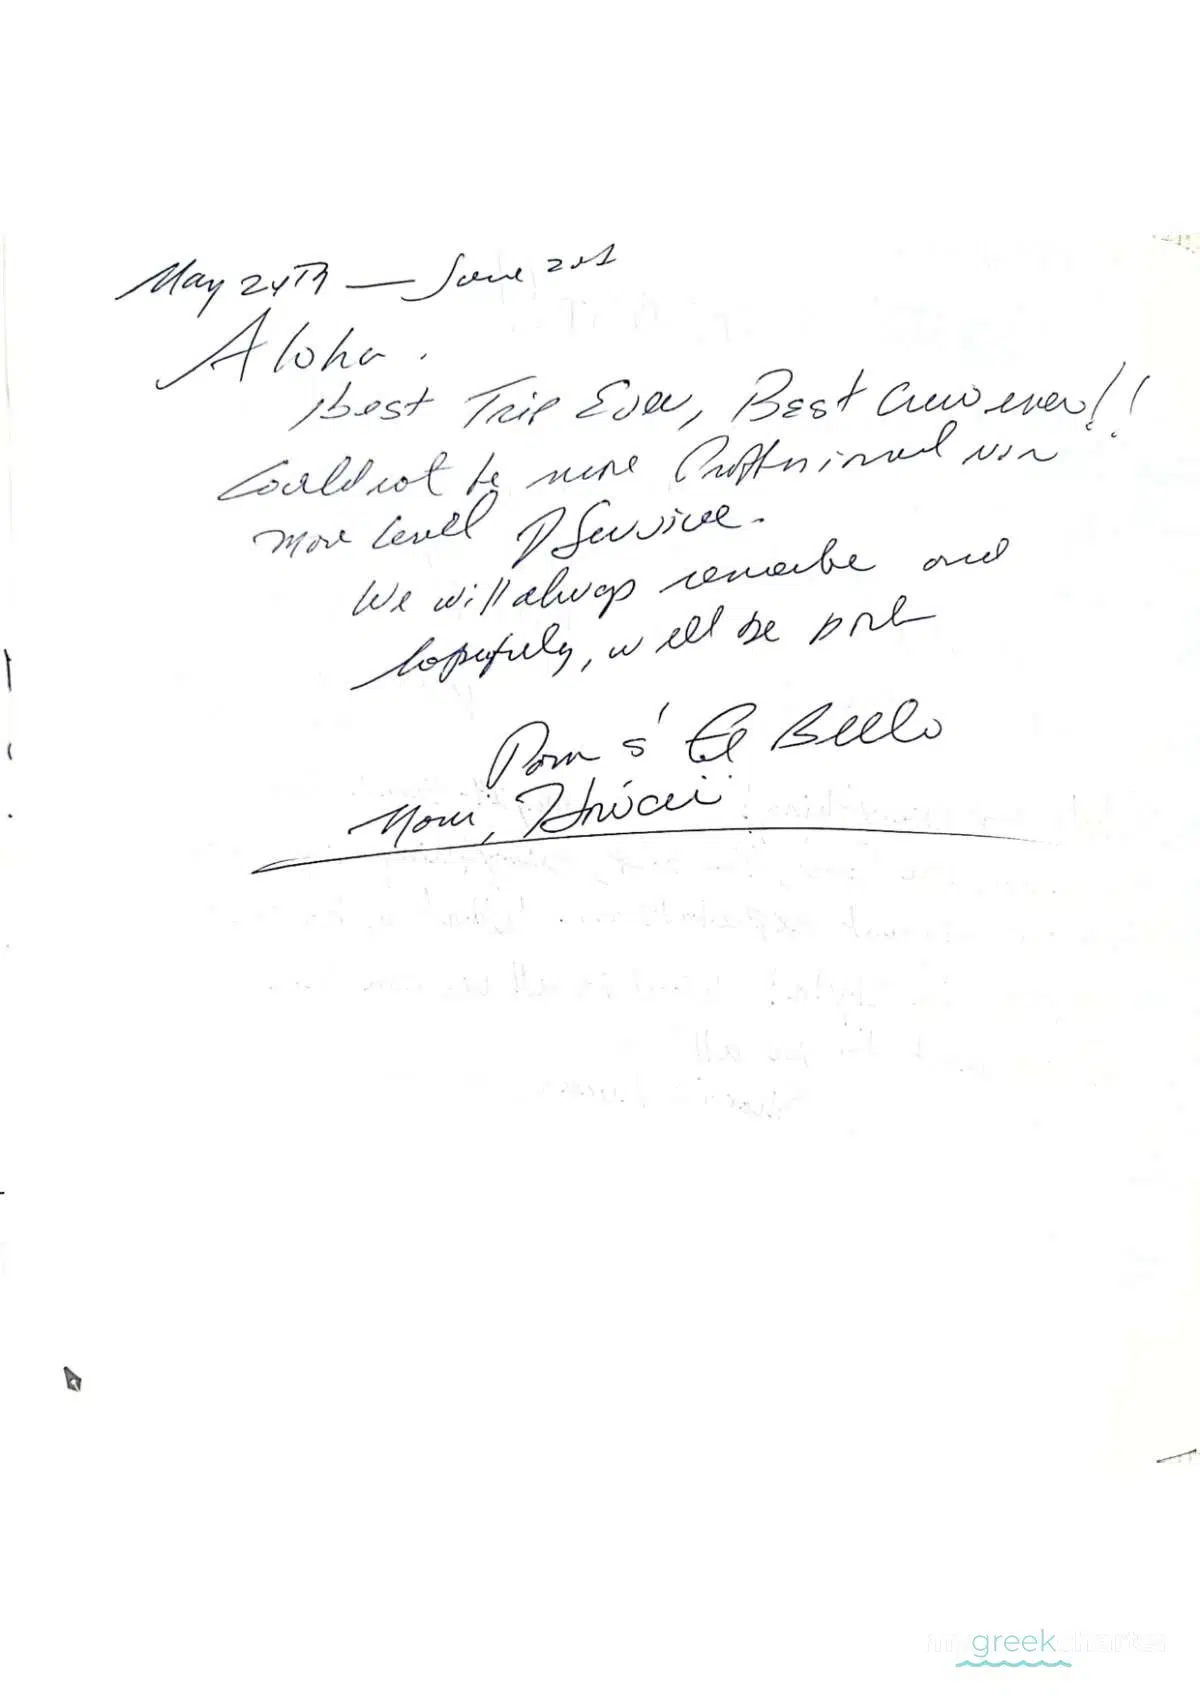 May 24TH — June 2
Aloha.
Best Trip Ever, Best Crew ever!!
Could not be more Professional nor
more level of Service.
We will always remember and
hopefully, will be back
Pam &
Maui, Hawaii
mygreekcharter